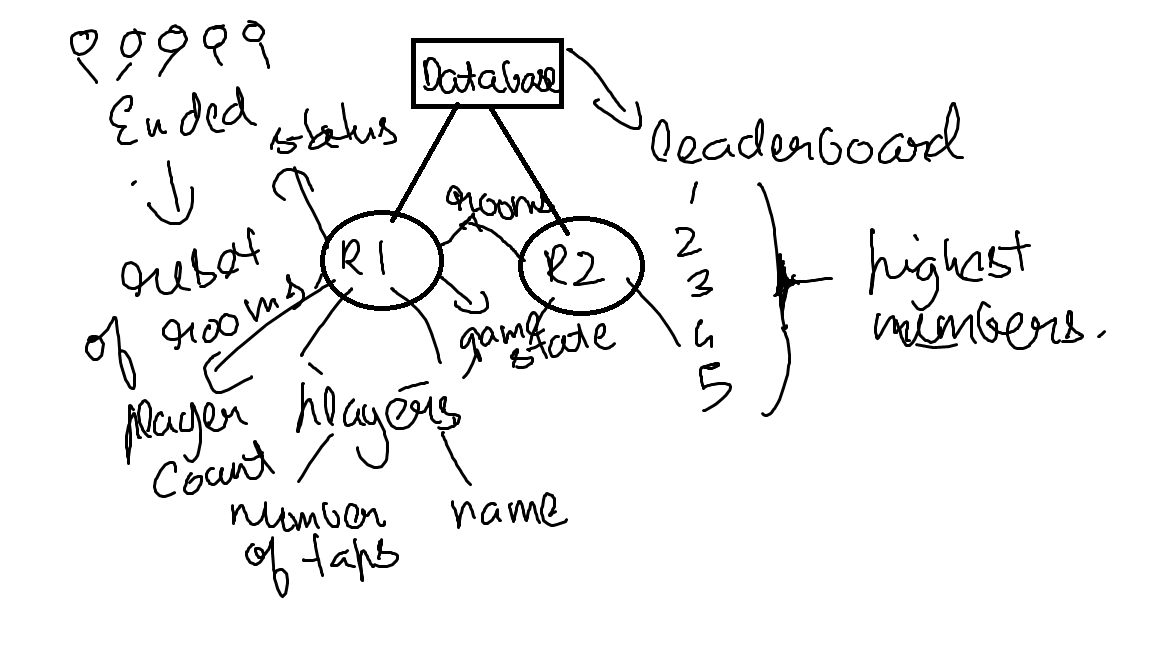 Database
Ended
status
leaderboard
rooms
1
2
3
4
5
R1
R2
highest
numbers.
reset
of rooms
game
state
player
count
players
number
of taps
name